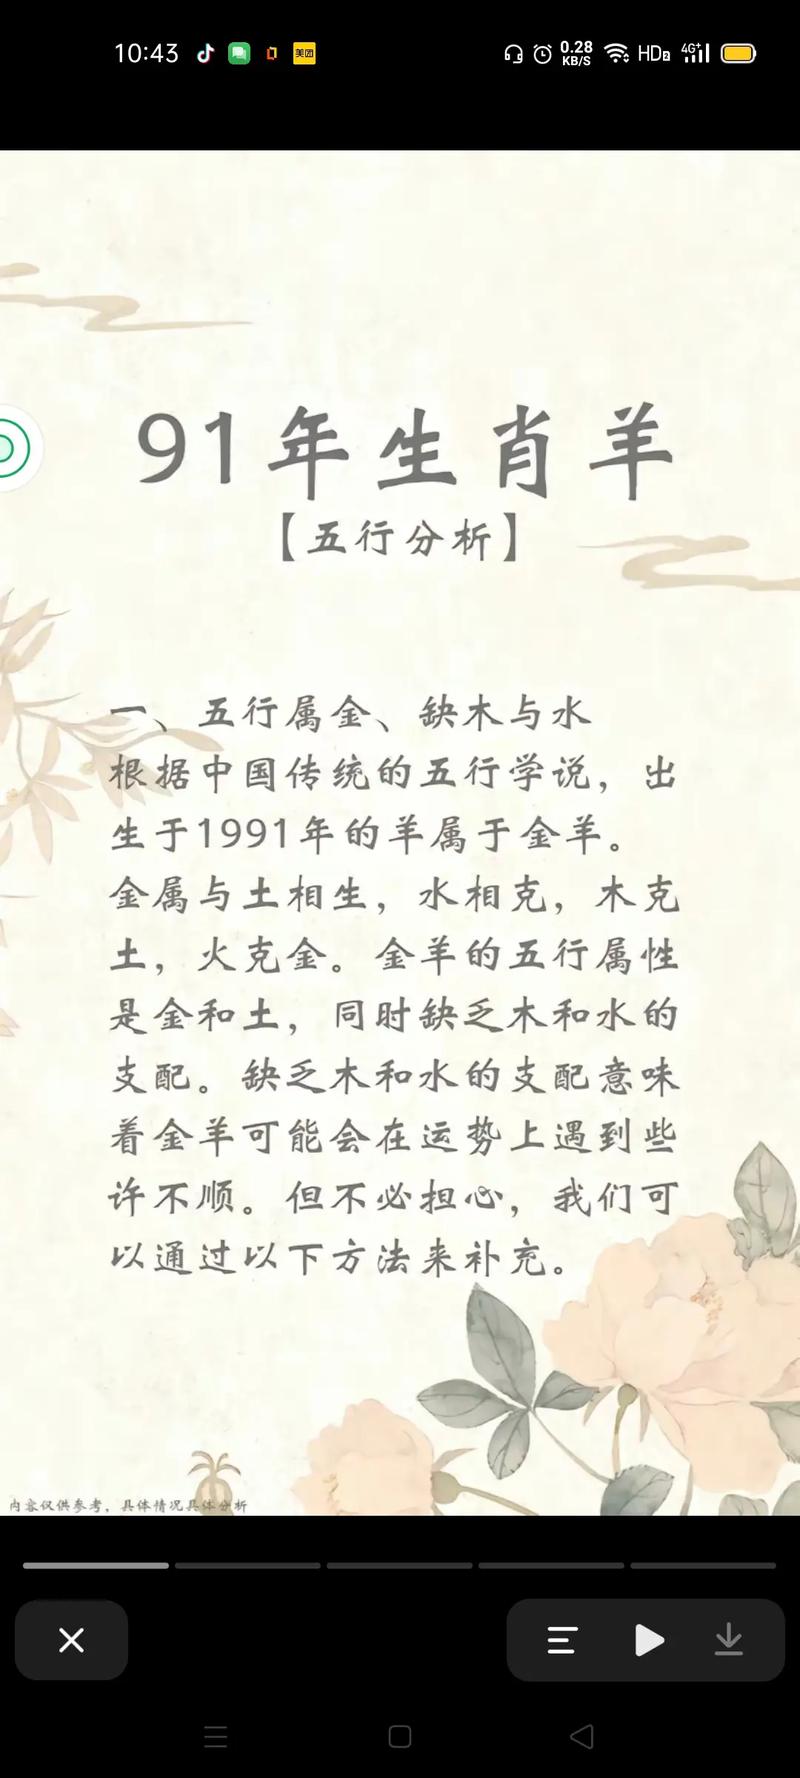 10:43
美团
0.28
KB/S
HD2
4G+
91年生肖羊
【五行分析】
一、五行属金、缺木与水
根据中国传统的五行学说，出
生于1991年的羊属于金羊。
金属与土相生，水相克，木克
土，火克金。金羊的五行属性
是金和土，同时缺乏木和水的
支配。缺乏木和水的支配意味
着金羊可能会在运势上遇到些
许不顺。但不必担心，我们可
以通过以下方法来补充。
内容仅供参考，具体情况具体分析